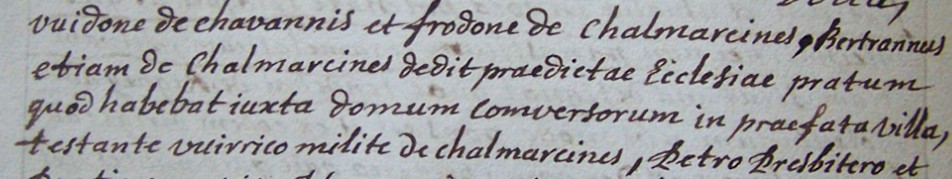 vuidone de chavannis et frodone de Chalmarcines, Bertrannus
etiam de Chalmarcines dedit praedictae Ecclesiae pratum
quod habebat iuxta domum Comversorum in praefata villa,
testante vuirrico milite de chalmarcines, Petro Presbitero et